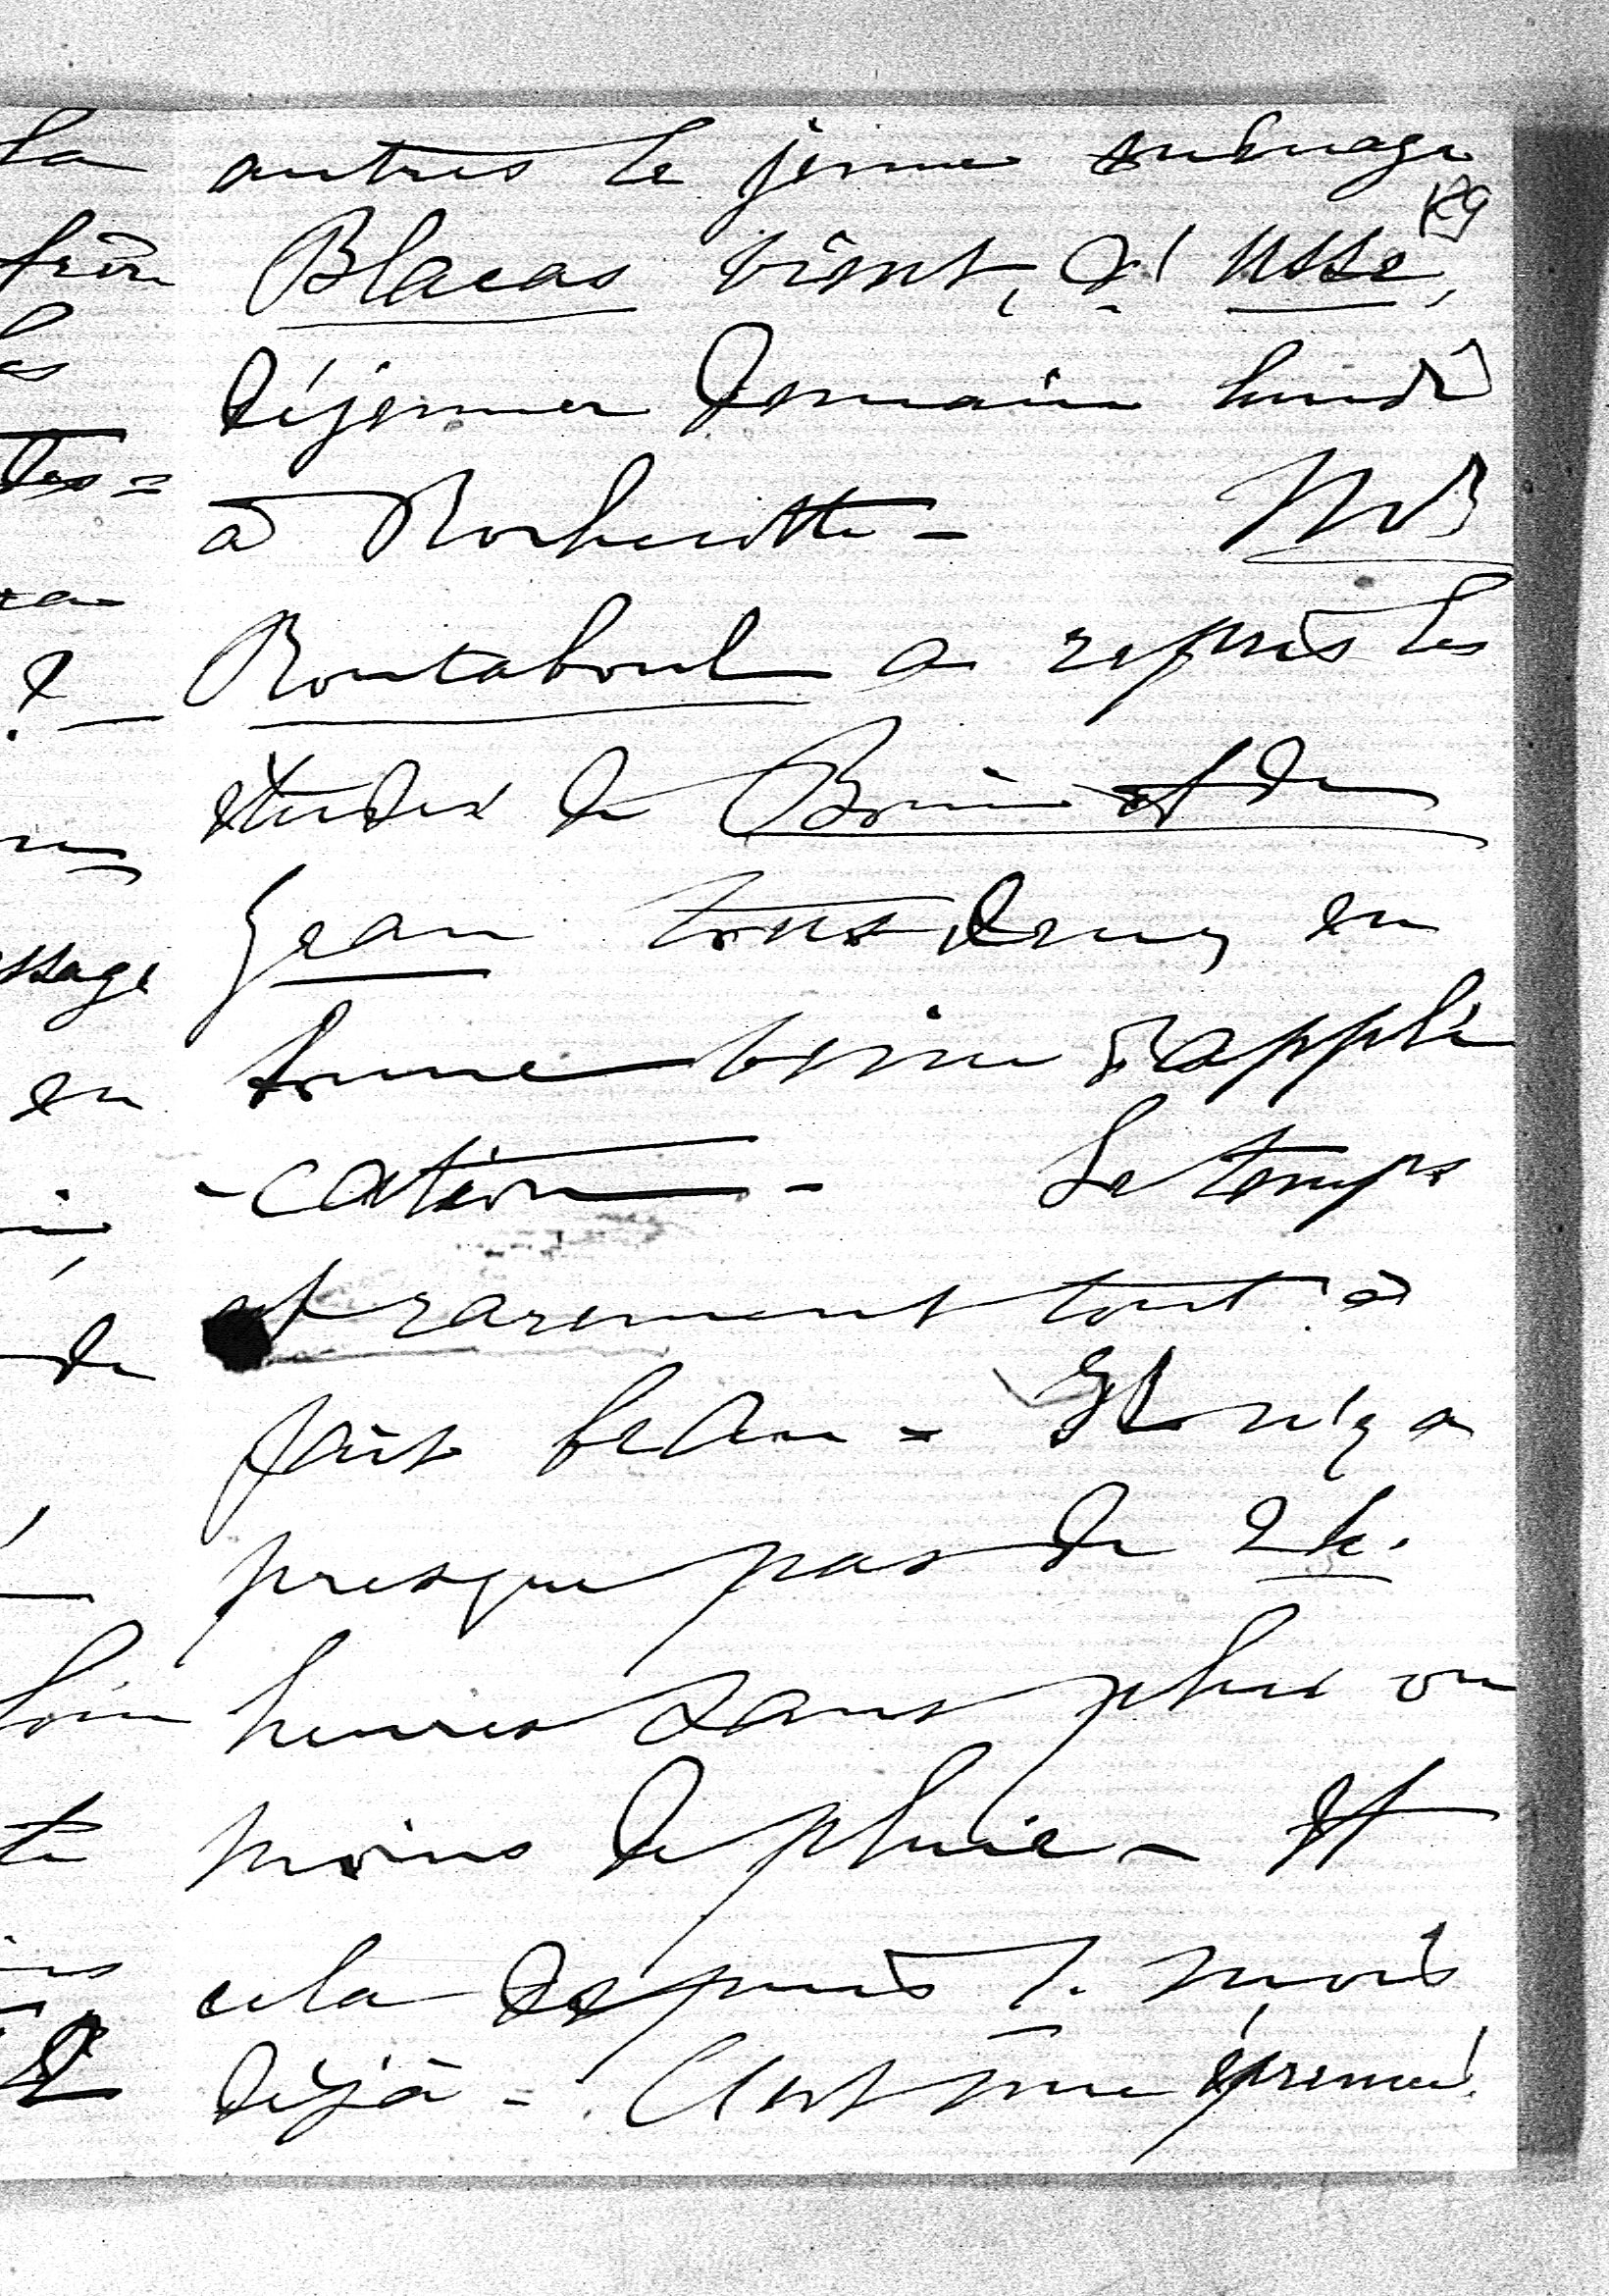 autres le jeune ménage
Blacas vient, d'Ussé,
déjeuner demain lundi
à Rochecotte -
Routaboul a repris les
études de Boni et de
Jean tous deux en
bonne veine d'appli
-cation - Le temps
est rarement tout à
fait beau - Il n'y a
presque pas de 24.
heures sans plus ou
moins de pluie - Et
cela depuis 1. mois
déjà - C'est une épreuve!
la
les
ssage
en
de
loin